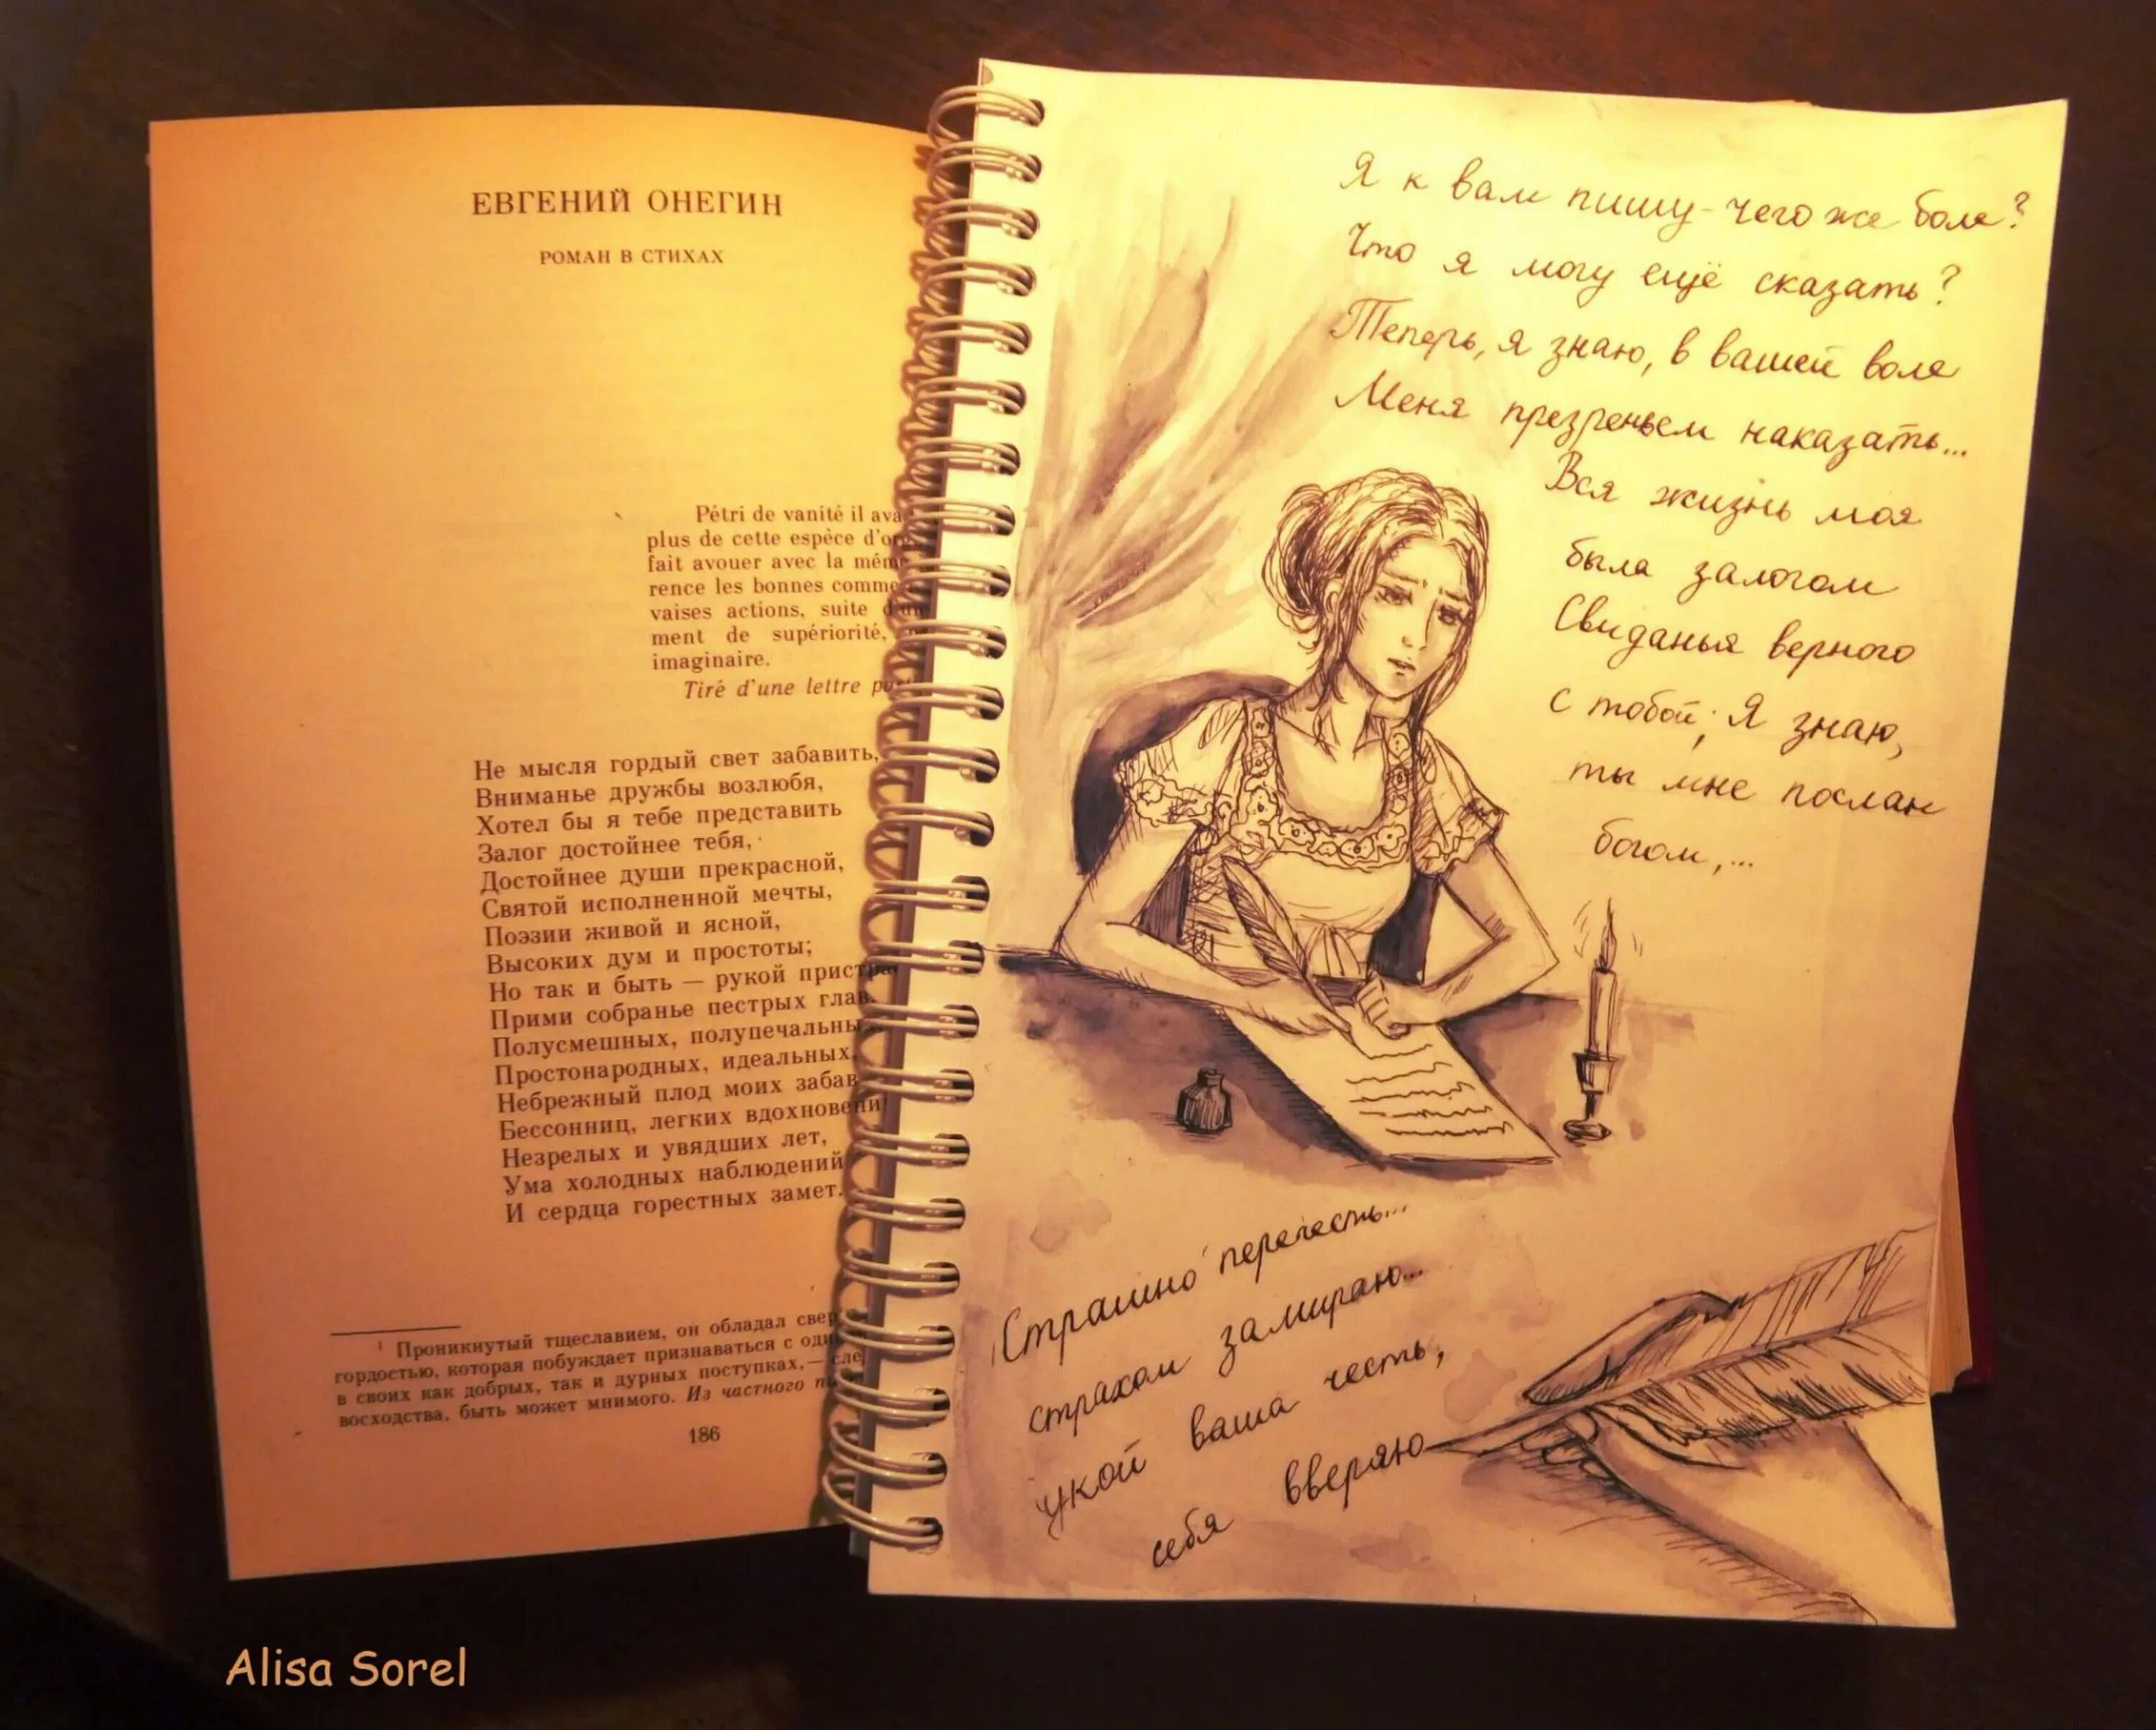 ЕВГЕНИЙ ОНЕГИН
РОМАН В СТИХАХ
Pétri de vanité il
plus de cette espèce
fait avouer avec la
rence les bonnes
vaises actions, suite
ment de supériorité,
imaginaire.
Tiré d'une lettre
Не мысля гордый свет забавить,
Вниманье дружбы возлюбя,
Хотел бы я тебе представить
Залог достойнее тебя,
Достойнее души прекрасной,
Святой исполненной мечты,
Поэзии живой и ясной,
Высоких дум и простоты;
Но так и быть — рукой
Прими собранье пестрых глав,
Полусмешных,
Простонародных, идеальных,
Небрежный плод моих забав
Бессонниц, легких
Незрелых и увядших лет,
Ума холодных наблюдений
И сердца горестных замет.
¹ Проникнутый тщеславием, он обладал
гордостью, которая побуждает признаваться с
в своих как добрых, так и дурных поступках,—
восходства, быть может мнимого. Из частного
186
Я к вам пишу - чего же боле?
Что я могу ещё сказать?
Теперь, я знаю, в вашей воле
Меня презреньем наказать...
Вся жизнь моя
была залогом
Свиданья верного
с тобой; Я знаю,
ты мне послан
богом,...
Страшно перечесть...
страхом замираю...
укой ваша честь,
себя вверяю
Alisa Sorel